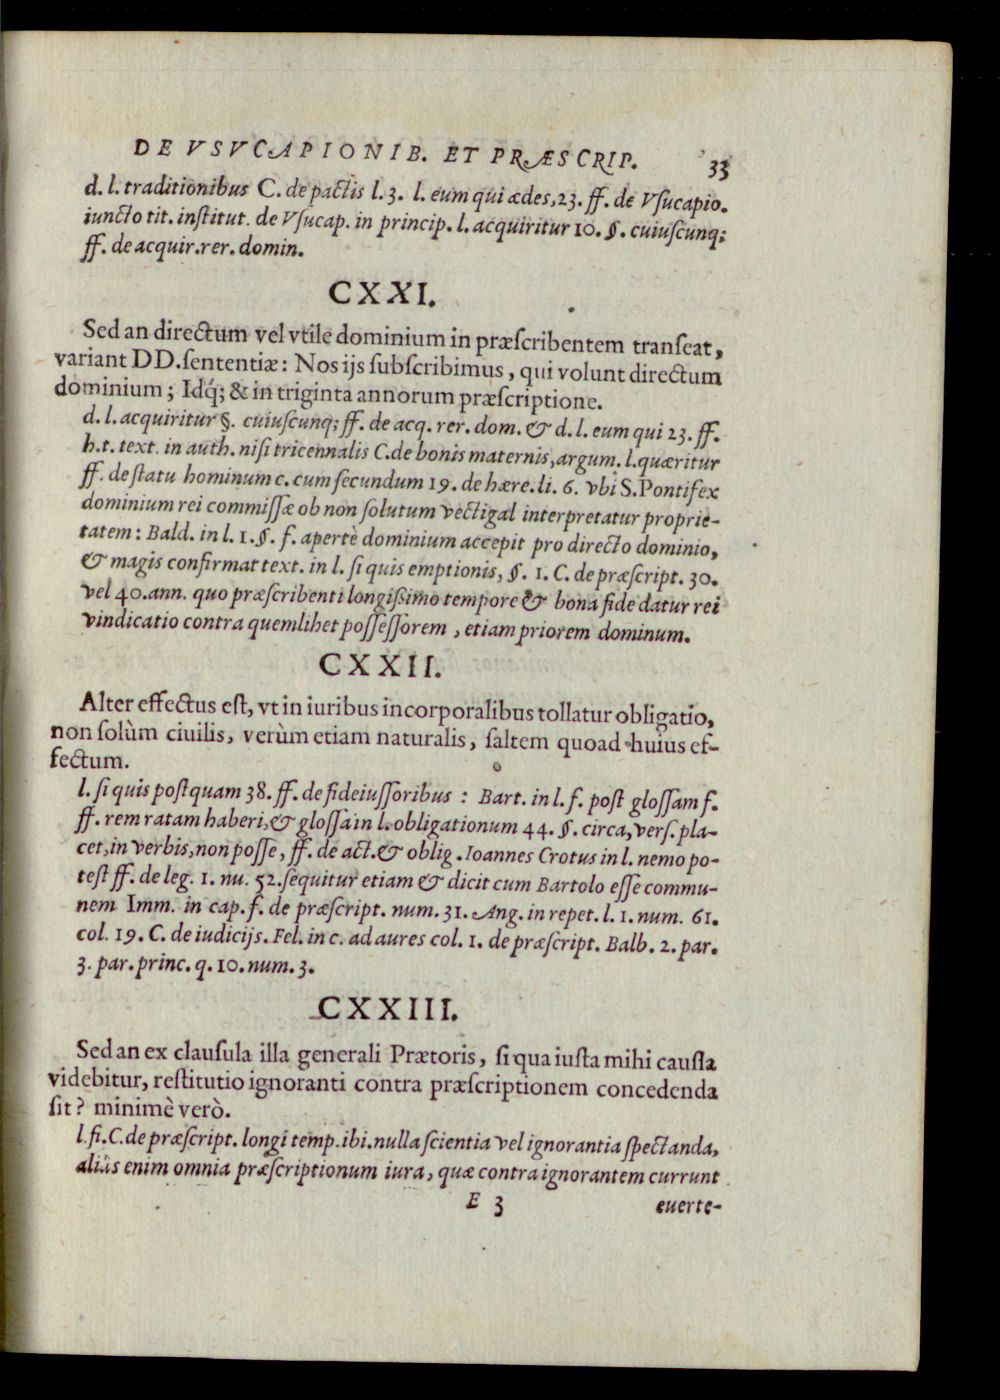 DE VSVCAPIONIB. ET PRÆSCRIP. 33
d. l. traditionibus C. de pactis l. 3. l. eum qui ædes, 23. ff. de Vsucapio.
iuncto tit. institut. de Vsucap. in princip. l. acquiritur 10. §. cuiuscunq;
ff. de acquir. rer. domin.
CXXI.
Sed an directum vel vtile dominium in præscribentem transeat,
variant DD. sententiæ: Nos ijs subscribimus, qui volunt directum
dominium; Idq́; & in triginta annorum præscriptione.
d. l. acquiritur §. cuiuscunq; ff. de acq. rer. dom. & d. l. eum qui 23. ff.
h. t. text. in auth. nisi tricennalis C. de bonis maternis, argum. l. quæritur
ff. de statu hominum c. cum secundum 19. de hære. li. 6. vbi S. Pontifex
dominium rei commissæ ob non solutum vectigal interpretatur proprie-
tatem: Bald. in l. 1. §. f. apertè dominium accepit pro directo dominio,
& magis confirmat text. in l. si quis emptionis, §. 1. C. de præscript. 30.
vel 40. ann. quo præscribenti longißimo tempore & bona fide datur rei
vindicatio contra quemlibet possessorem, etiam priorem dominum.
CXXII.
Alter effectus est, vt in iuribus incorporalibus tollatur obligatio,
non solùm ciuilis, verùm etiam naturalis, saltem quoad huius ef-
fectum.
l. si quis postquam 38. ff. de fideiussoribus: Bart. in l. f. post glossam f.
ff. rem ratam haberi, & glossa in l. obligationum 44. §. circa, vers. pla-
cet, in verbis, non posse, ff. de act. & oblig. Ioannes Crotus in l. nemo po-
test ff. de leg. 1. nu. 52. sequitur etiam & dicit cum Bartolo esse commu-
nem Imm. in cap. f. de præscript. num. 31. Ang. in repet. l. 1. num. 61.
col. 19. C. de iudicijs. Fel. in c. ad aures col. 1. de præscript. Balb. 2. par.
3. par. princ. q. 10. num. 3.
CXXIII.
Sed an ex clausula illa generali Prætoris, si qua iusta mihi caussa
videbitur, restitutio ignoranti contra præscriptionem concedenda
sit? minimè verò.
l. fi. C. de præscript. longi temp. ibi. nulla scientia vel ignorantia spectanda,
aliàs enim omnia præscriptionum iura, quæ contra ignorantem currunt
E 3 euerte-